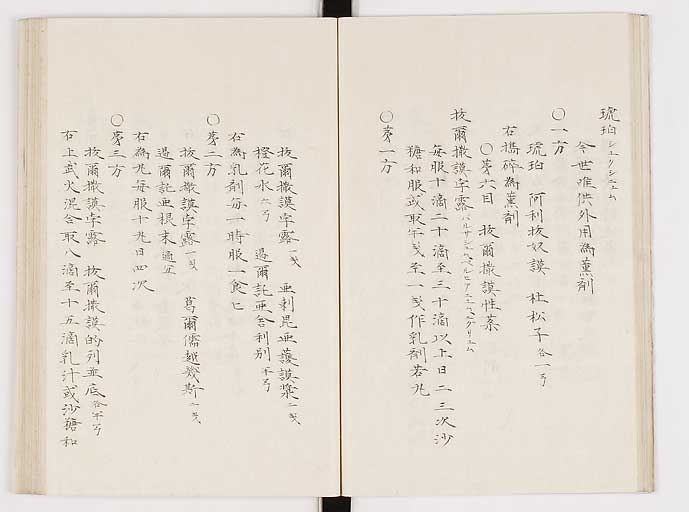 琥珀シュクシニュム
今世唯供外用為薫剤
〇一方
琥珀 阿利抜奴謨 杜松子各一ヲ
右擣砕為薫剤
〇第六目 抜爾撒謨性薬
抜爾撒謨孛露バルサシュム
毎服十滴二十滴至三十滴以上日二三次沙
糖和服或取半戔至一戔作乳剤若丸
〇第一方
抜爾撒謨孛露一戔 亜剌毘亜護謨漿二戔
橙花水六ヲ 過爾託亜舎利別半ヲ
右為乳剤毎一時服一食匕
〇第二方
抜爾撒謨孛露一戔 葛爾儒越幾斯一戔
過爾託亜根末適宜
右為丸毎服十丸日四次
〇第三方
抜爾撒謨孛露 抜爾撒謨的列並底各半ヲ
右上武火混合取八滴至十五滴乳汁或沙糖和